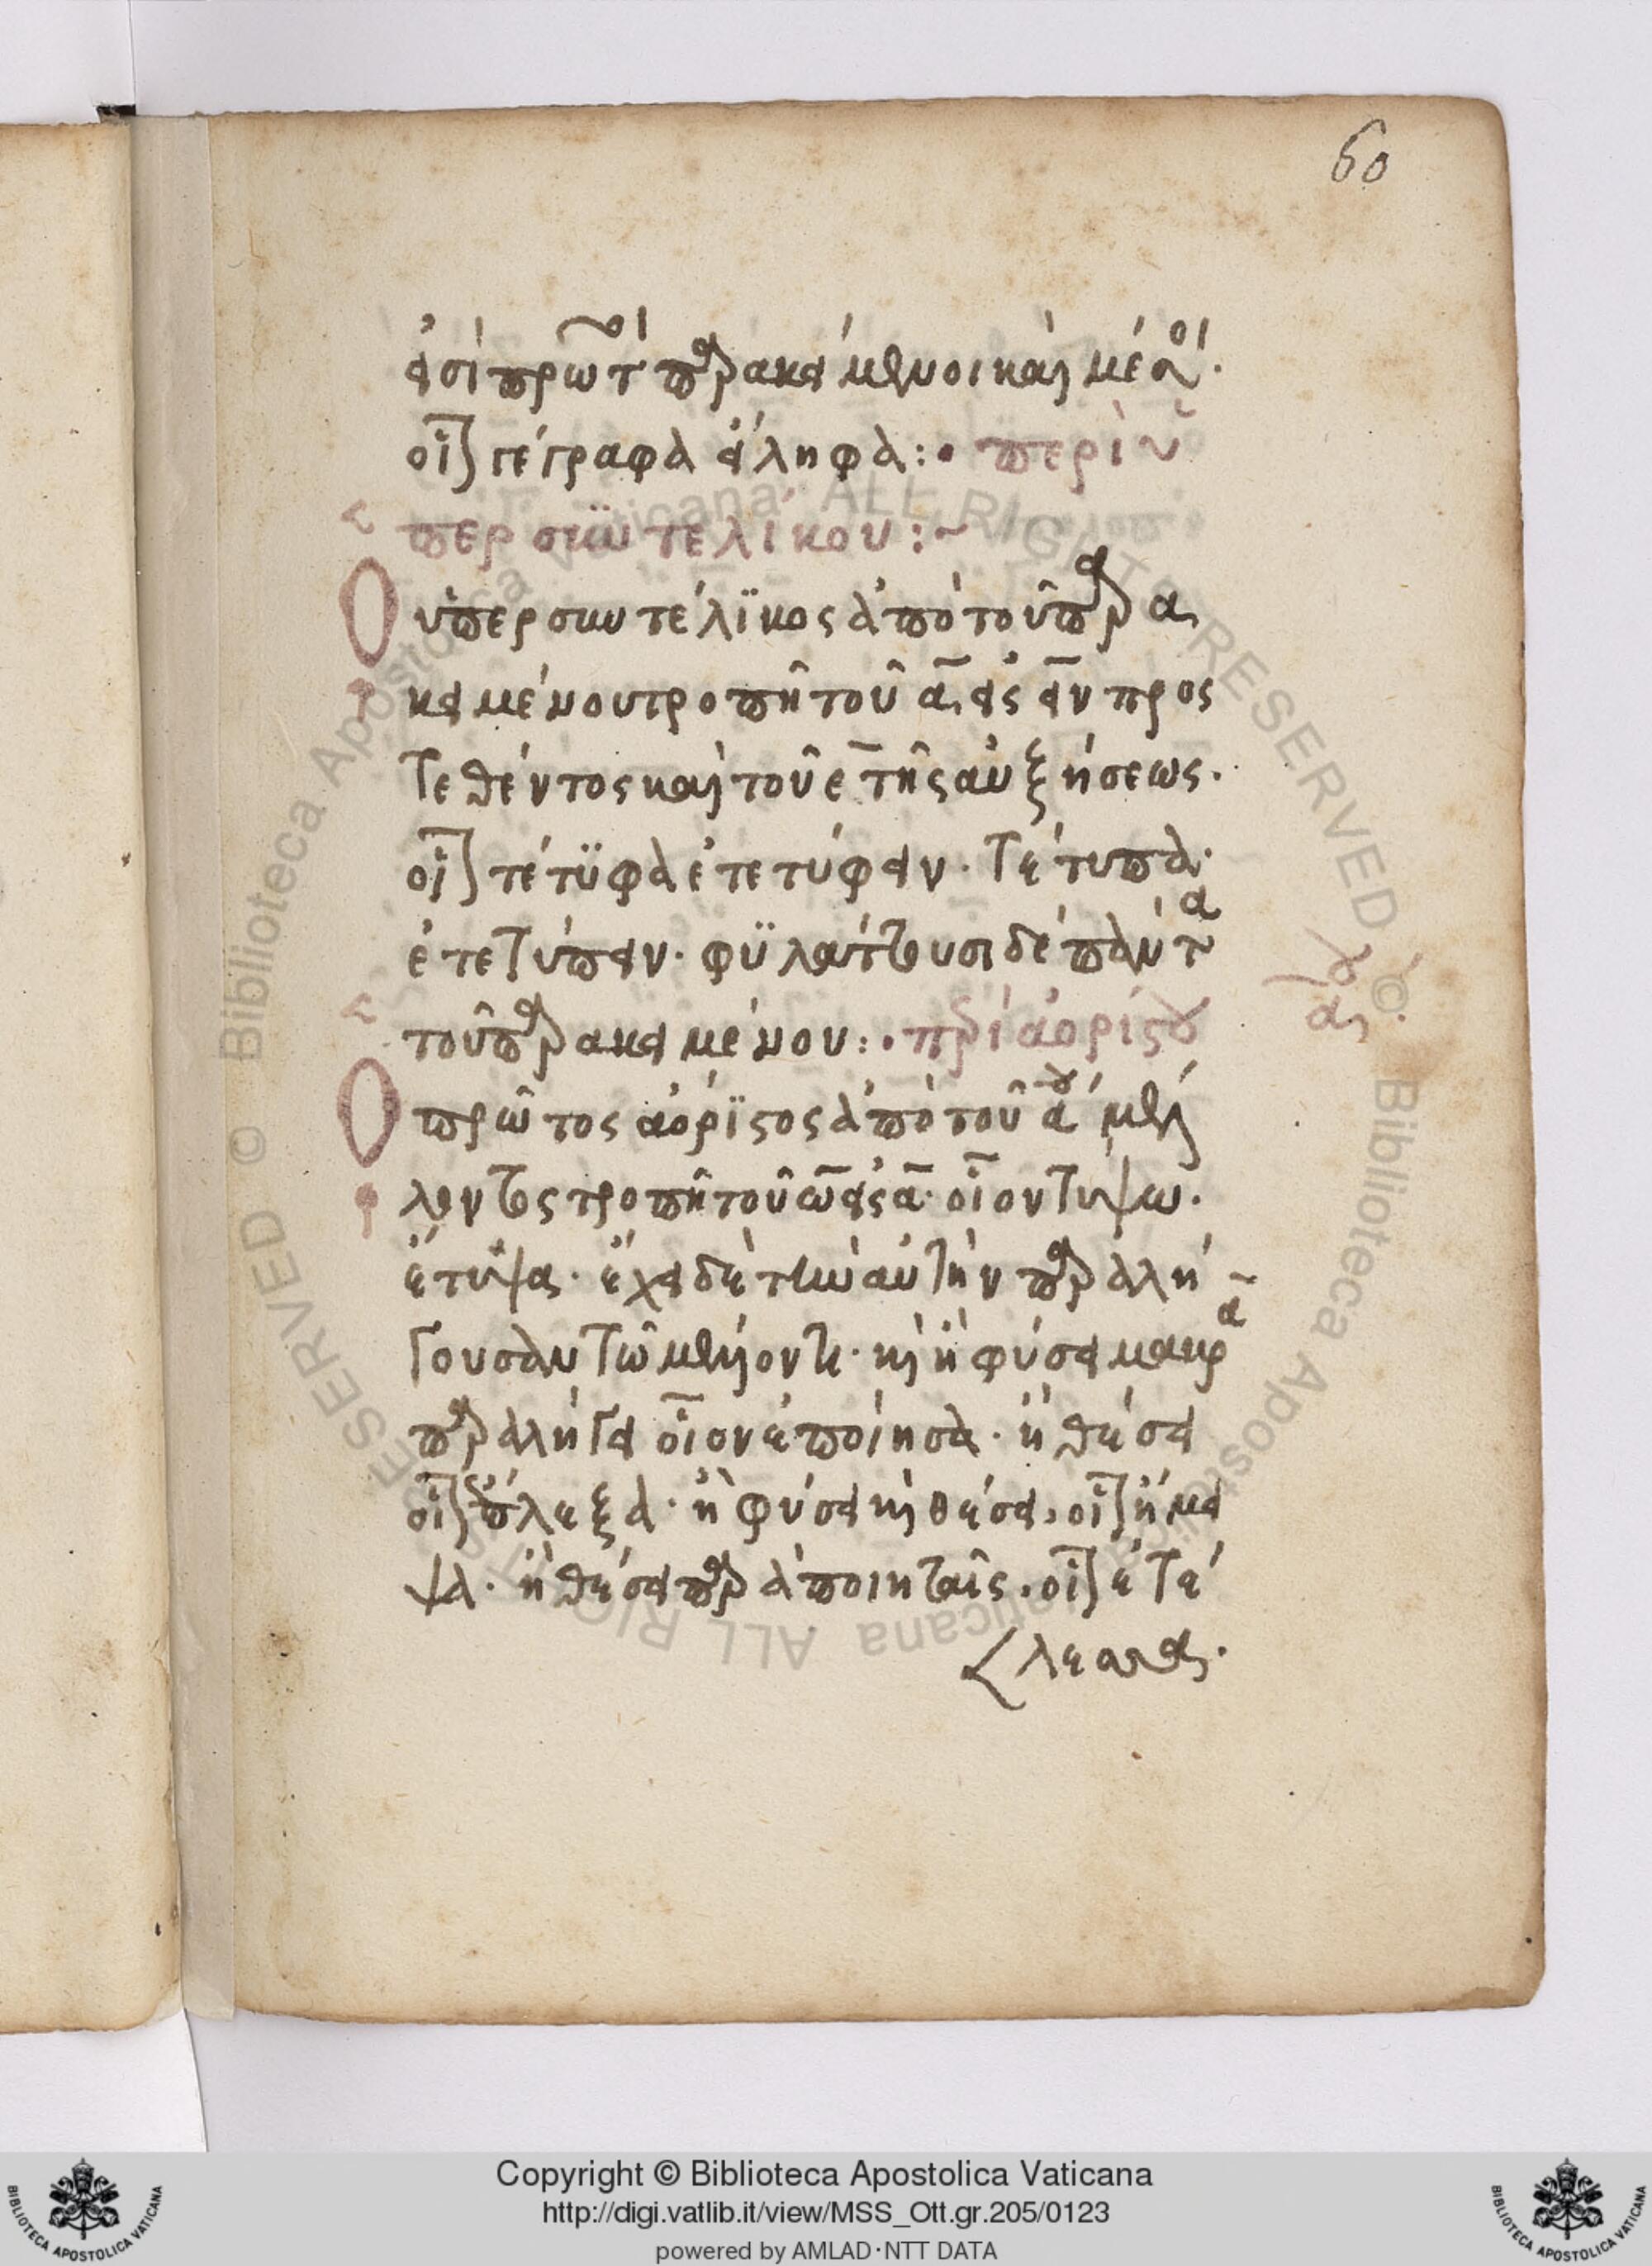 60
εἰσὶ πρῶτοι παρακείμενοι καὶ μέσοι.
οἷον γέγραφα εἴληφα :· περὶ ὑ
περσυντελίκου :~
Ο ὑπερσυντέλϊκος ἀπὸ τοῦ παρα
κειμένου τροπῆ τοῦ α εἰς ειν προς
τεθέντος καὶ τοῦ ε τῆς αὐξήσεως.
οἷον τέτϋφα ἐτετύφειν. τέτυπα.
ἐτετύπειν. φϋλάττουσι δὲ πάντα
τοῦ παρακειμένου :· περὶ ἀορίστου
Ο πρῶτος ἀόρϊστος ἀπὸ τοῦ α μέλ
λοντος τροπῆ τοῦ ω εἰς α. οἷον τύψω.
ἔτυψα. ἔχει δὲ τὴν αὐτὴν παραλή
γουσαν τῶ μέλλοντι. καὶ ἢ φύσει μακρᾶ
παραλήγει οἷον ἐποίησα. ἢ θέσει
οἷον ἔπλεξα. ἢ φύσει καὶ θέσει, οἷον ἤμει
ψα. ἢ θέσει παρὰ ποιηταῖς. οἷον ἐτέ
λεσσας.
Copyright © Biblioteca Apostolica Vaticana
http://digi.vatlib.it/view/MSS_Ott.gr.205/0123
powered by AMLAD·NTT DATA
BIBLIOTECA APOSTOLICA VATICANA
BIBLIOTECA APOSTOLICA VATICANA